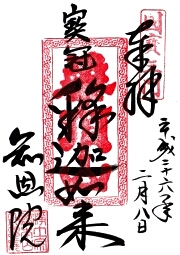 奉拝
平成二十六年
二月八日
寳冠
釋迦如来
知恩院